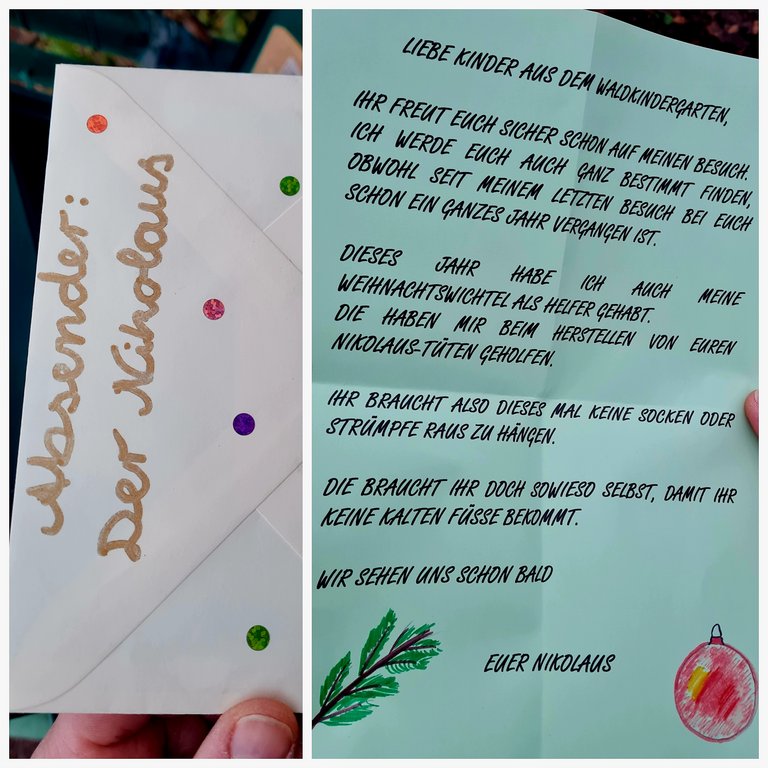 Absender:
Der Nikolaus
LIEBE KINDER AUS DEM WALDKINDERGARTEN,
IHR FREUT EUCH SICHER SCHON AUF MEINEN BESUCH.
ICH WERDE EUCH AUCH GANZ BESTIMMT FINDEN,
OBWOHL SEIT MEINEM LETZTEN BESUCH BEI EUCH
SCHON EIN GANZES JAHR VERGANGEN IST.
DIESES JAHR HABE ICH AUCH MEINE
WEIHNACHTSWICHTEL ALS HELFER GEHABT.
DIE HABEN MIR BEIM HERSTELLEN VON EUREN
NIKOLAUS-TÜTEN GEHOLFEN.
IHR BRAUCHT ALSO DIESES MAL KEINE SOCKEN ODER
STRÜMPFE RAUS ZU HÄNGEN.
DIE BRAUCHT IHR DOCH SOWIESO SELBST, DAMIT IHR
KEINE KALTEN FÜSSE BEKOMMT.
WIR SEHEN UNS SCHON BALD
EUER NIKOLAUS